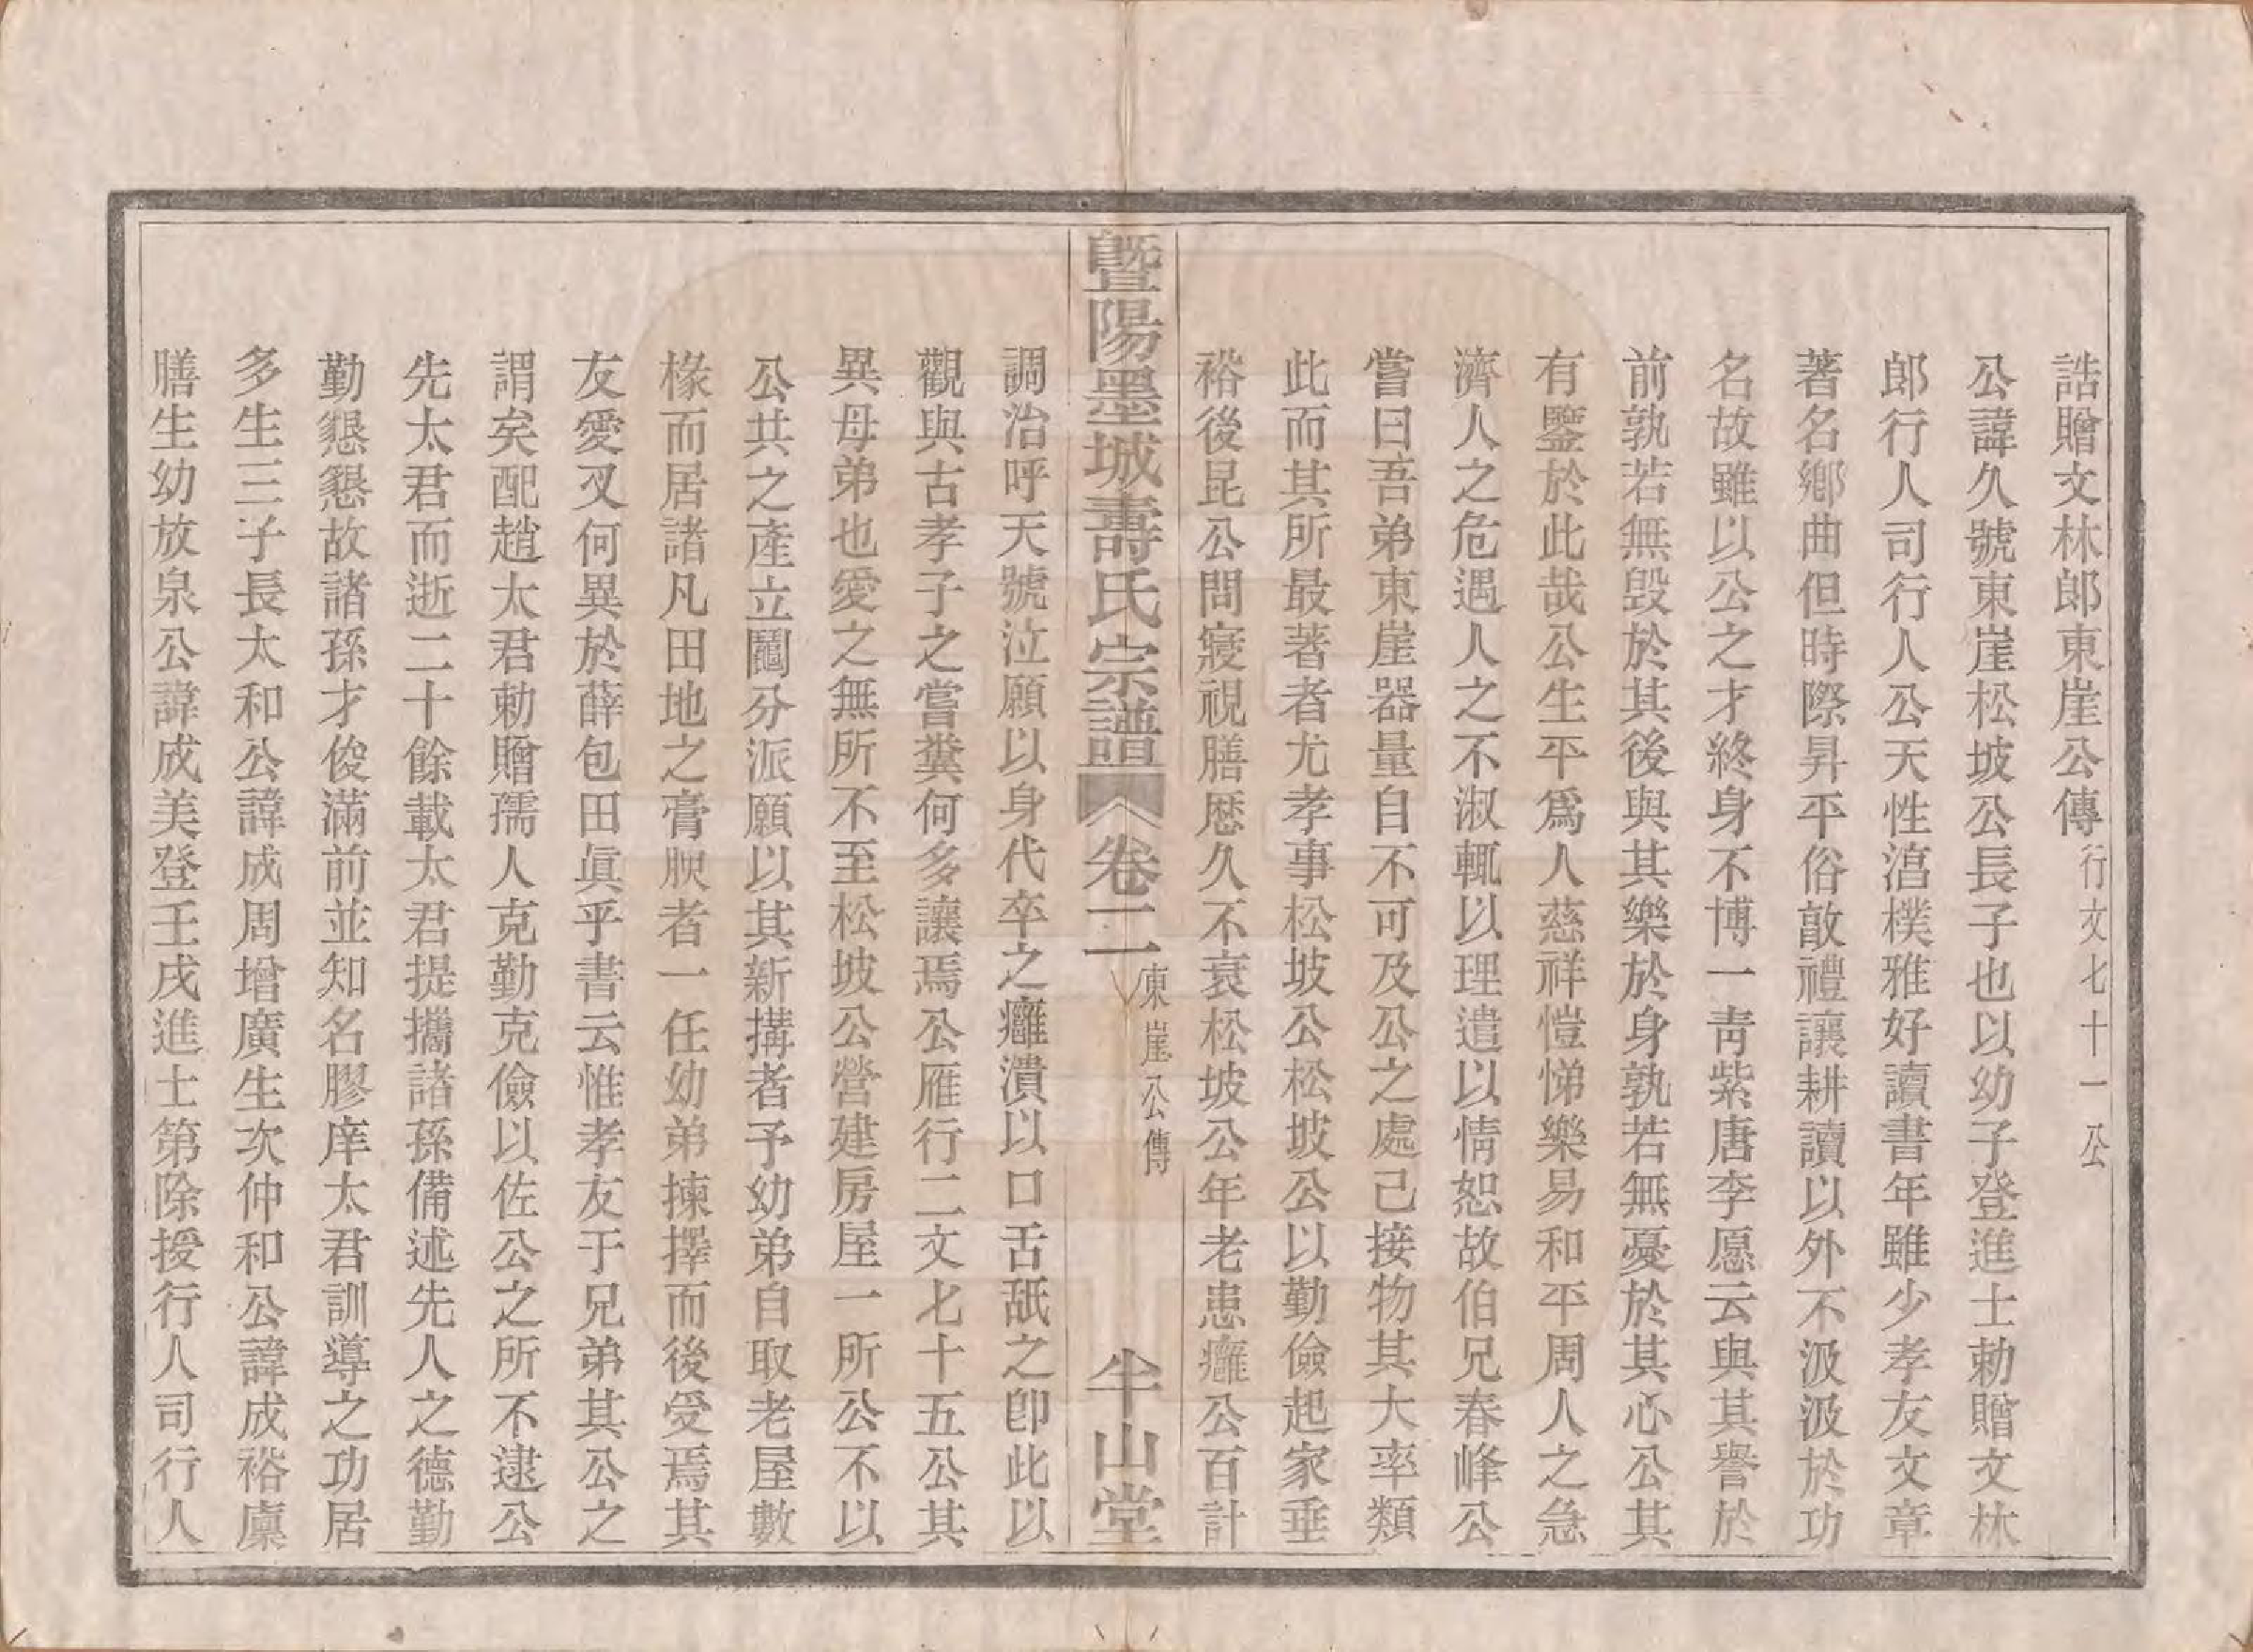 誥贈文林郎東崖公傳行文七十一公
公諱久號東崖松坡公長子也以幼子登進士勅贈文林
郎行人司行人公天性渾樸雅好讀書年雖少孝友文章
著名鄉曲但時際昇平俗敢禮讓耕讀以外不汲汲於功
名故雖以公之才終身不博一靑紫唐李愿云與其譽於
前孰若無毀於其後與其樂於身孰若無憂於其心公其
有鑒於此哉公生平爲人慈祥愷悌樂易和平周人之急
濟人之危遇人之不淑輒以理遣以情恕故伯兄春峰公
嘗曰吾弟東崖器量自不可及公之處己接物其大率類
此而其所最著者尤孝事松坡公松坡公以勤儉起家垂
裕後昆公問寢視膳歷久不衰松坡公年老患癰公百計
暨陽墨城壽氏宗譜 卷二 東崖公傳 半山堂
調治呼天號泣願以身代卒之癰潰以口舌舐之卽此以
觀與古孝子之嘗糞何多讓焉公雁行二文七十五公其
異母弟也愛之無所不至松坡公營建房屋一所公不以
公共之產立鬮分派願以其新搆者予幼弟自取老屋數
椽而居諸凡田地之膏腴者一任幼弟揀擇而後受焉其
友愛又何異於薛包田眞乎書云惟孝友于兄弟其公之
謂矣配趙太君勅贈孺人克勤克儉以佐公之所不逮公
先太君而逝二十餘載太君提攜諸孫備述先人之德勤
勤懇懇故諸孫才俊滿前並知名膠庠太君訓導之功居
多生三子長太和公諱成周增廣生次仲和公諱成裕廩
膳生幼放泉公諱成美登壬戌進士第除授行人司行人